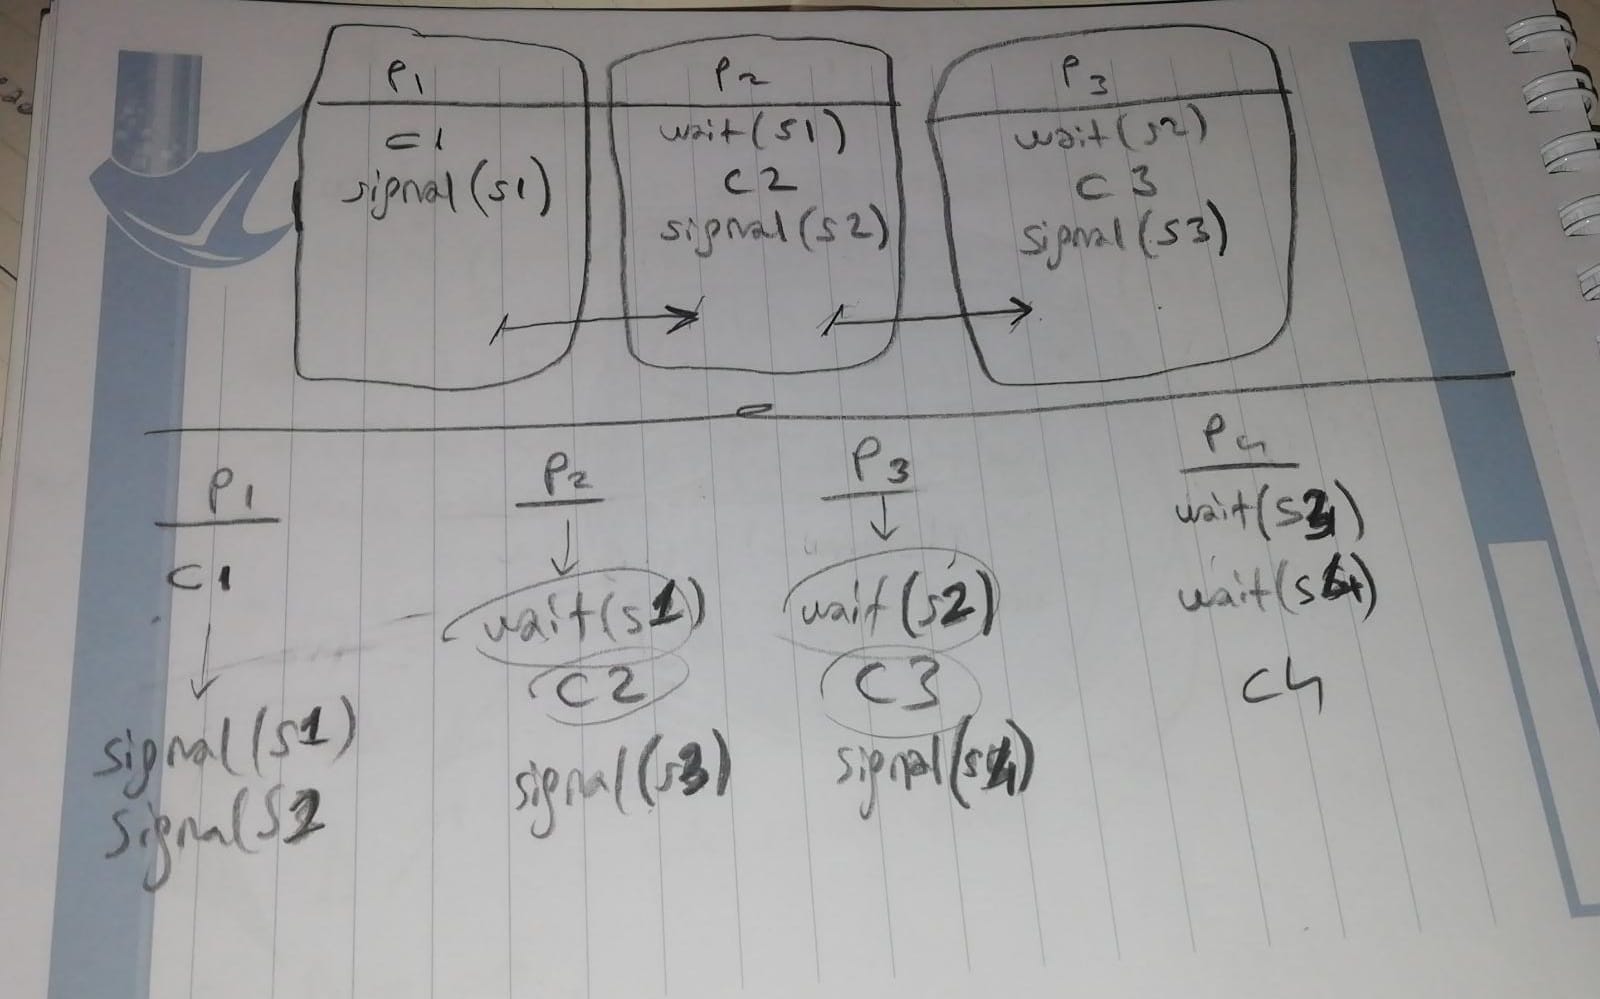 P1
C1
signal(s1)
P2
wait(s1)
C2
signal(s2)
P3
wait(s2)
C3
signal(s3)
P1
C1
signal(s1)
signal s2
P2
wait(s1)
C2
signal(s3)
P3
wait(s2)
C3
signal(s4)
P4
wait(s3)
wait(s4)
C4